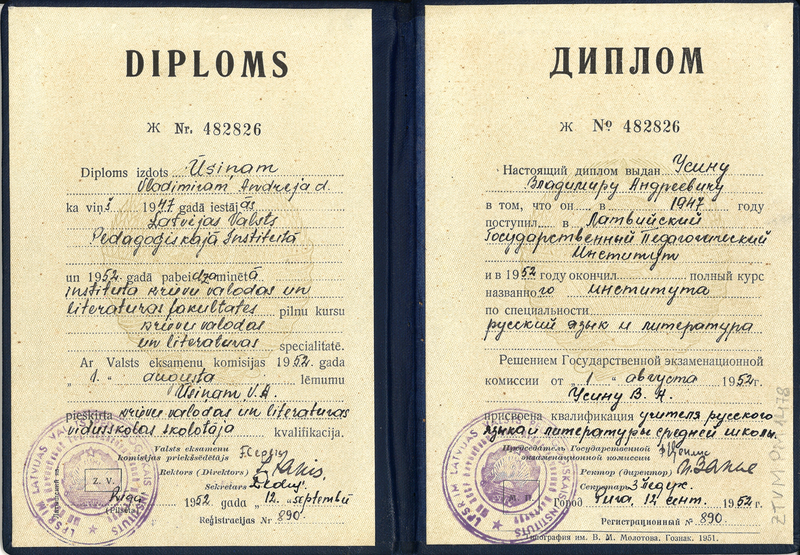 DIPLOMS
Ж Nr. 482826
Diploms izdots Ūsiņam
Vladimiram Andreja d.
ka viņš 1947 gadā iestājās
Latvijas Valsts
Pedagoģiskajā Institūtā
un 1952 gadā pabeidza minētā
institūta krievu valodas un
literatūras fakultātes pilnu kursu
krievu valodas
un literatūras specialitātē.
Ar Valsts eksamenu komisijas 1952 gada
„ 1. “ augusta lēmumu
Ūsiņam V. A.
piešķirta krievu valodas un literatūras
vidusskolas skolotāja kvalifikācija.
Valsts eksamenu
komisijas priekšsēdētājs
Rektors (Direktors)
Sekretars
Z. V.
Rīgā 1952 gada „ 12. “ septembrī
(Pilsēta)
Reģistrācijas Nr 890.
ДИПЛОМ
Ж № 482826
Настоящий диплом выдан Усину
Владимиру Андреевичу
в том, что он в 1947 году
поступил в Латвийский
Государственный Педагогический
Институт
и в 1952 году окончил полный курс
названного института
по специальности
русский язык и литература
Решением Государственной экзаменационной
комиссии от „ 1 “ августа 1952 г.
Усину В. А.
присвоена квалификация учителя русского
языка и литературы средней школы.
Председатель Государственной
экзаменационной комиссии
Ректор (директор)
Секретарь
М. П.
Город Рига, 12 сент. 1952 г.
Регистрационный № 890.
Типография им. В. М. Молотова. Гознак. 1951.